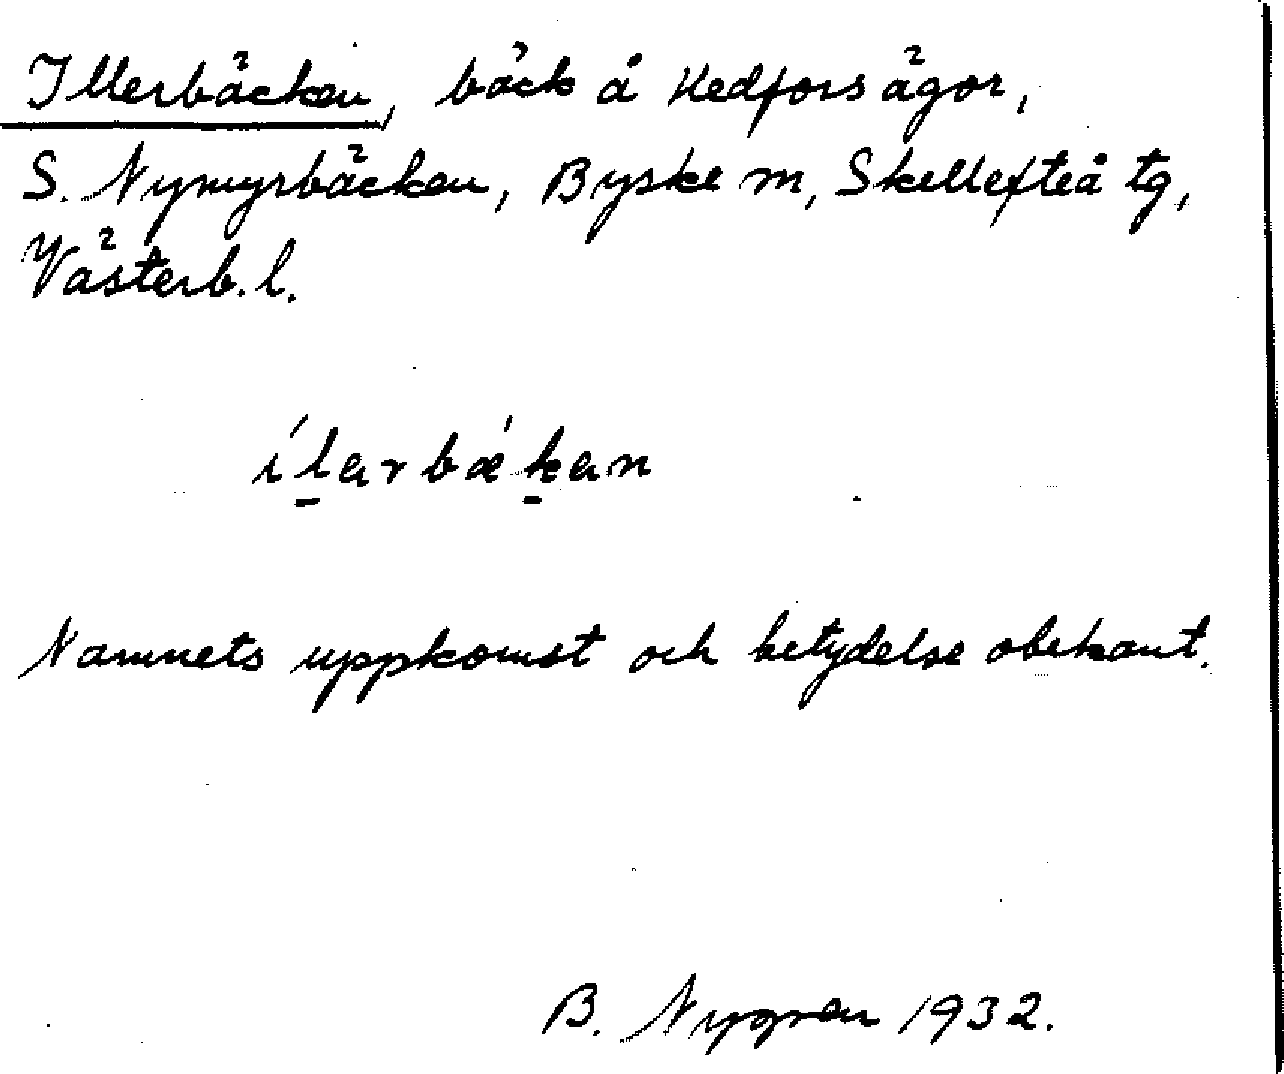 Illerbäcken, bäck å Hedfors ägor,
S. Nymyrbäcken, Byske m, Skellefteå tg,
Västerb. l.
íl̠arbǽk̠an
Namnets uppkomst och betydelse obekant.
B. Nygren 1932.